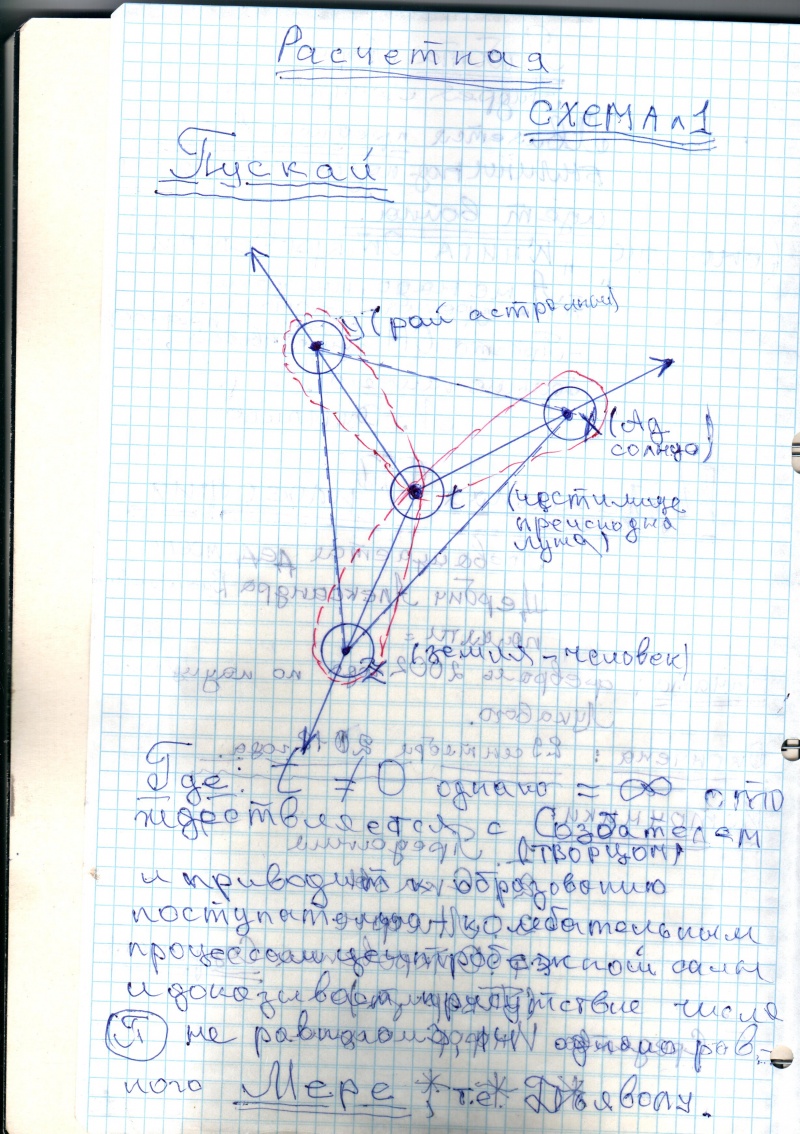 Расчетная
СХЕМА №1
Пускай
У (рай астролный)
Х (Ад
солнцо)
t (чистилище
преисподня
луна)
Z (земля-человек)
Где: t ≠ 0 однако = ∞ ото
ждествляется с Создателем
(творцом)
и приводит к образованию
поступательно колебательным
процессам центробежной силы
и доказывает присутствие числа
П не равного однако рав-
ного Мере *; т.е.* Дьяволу.